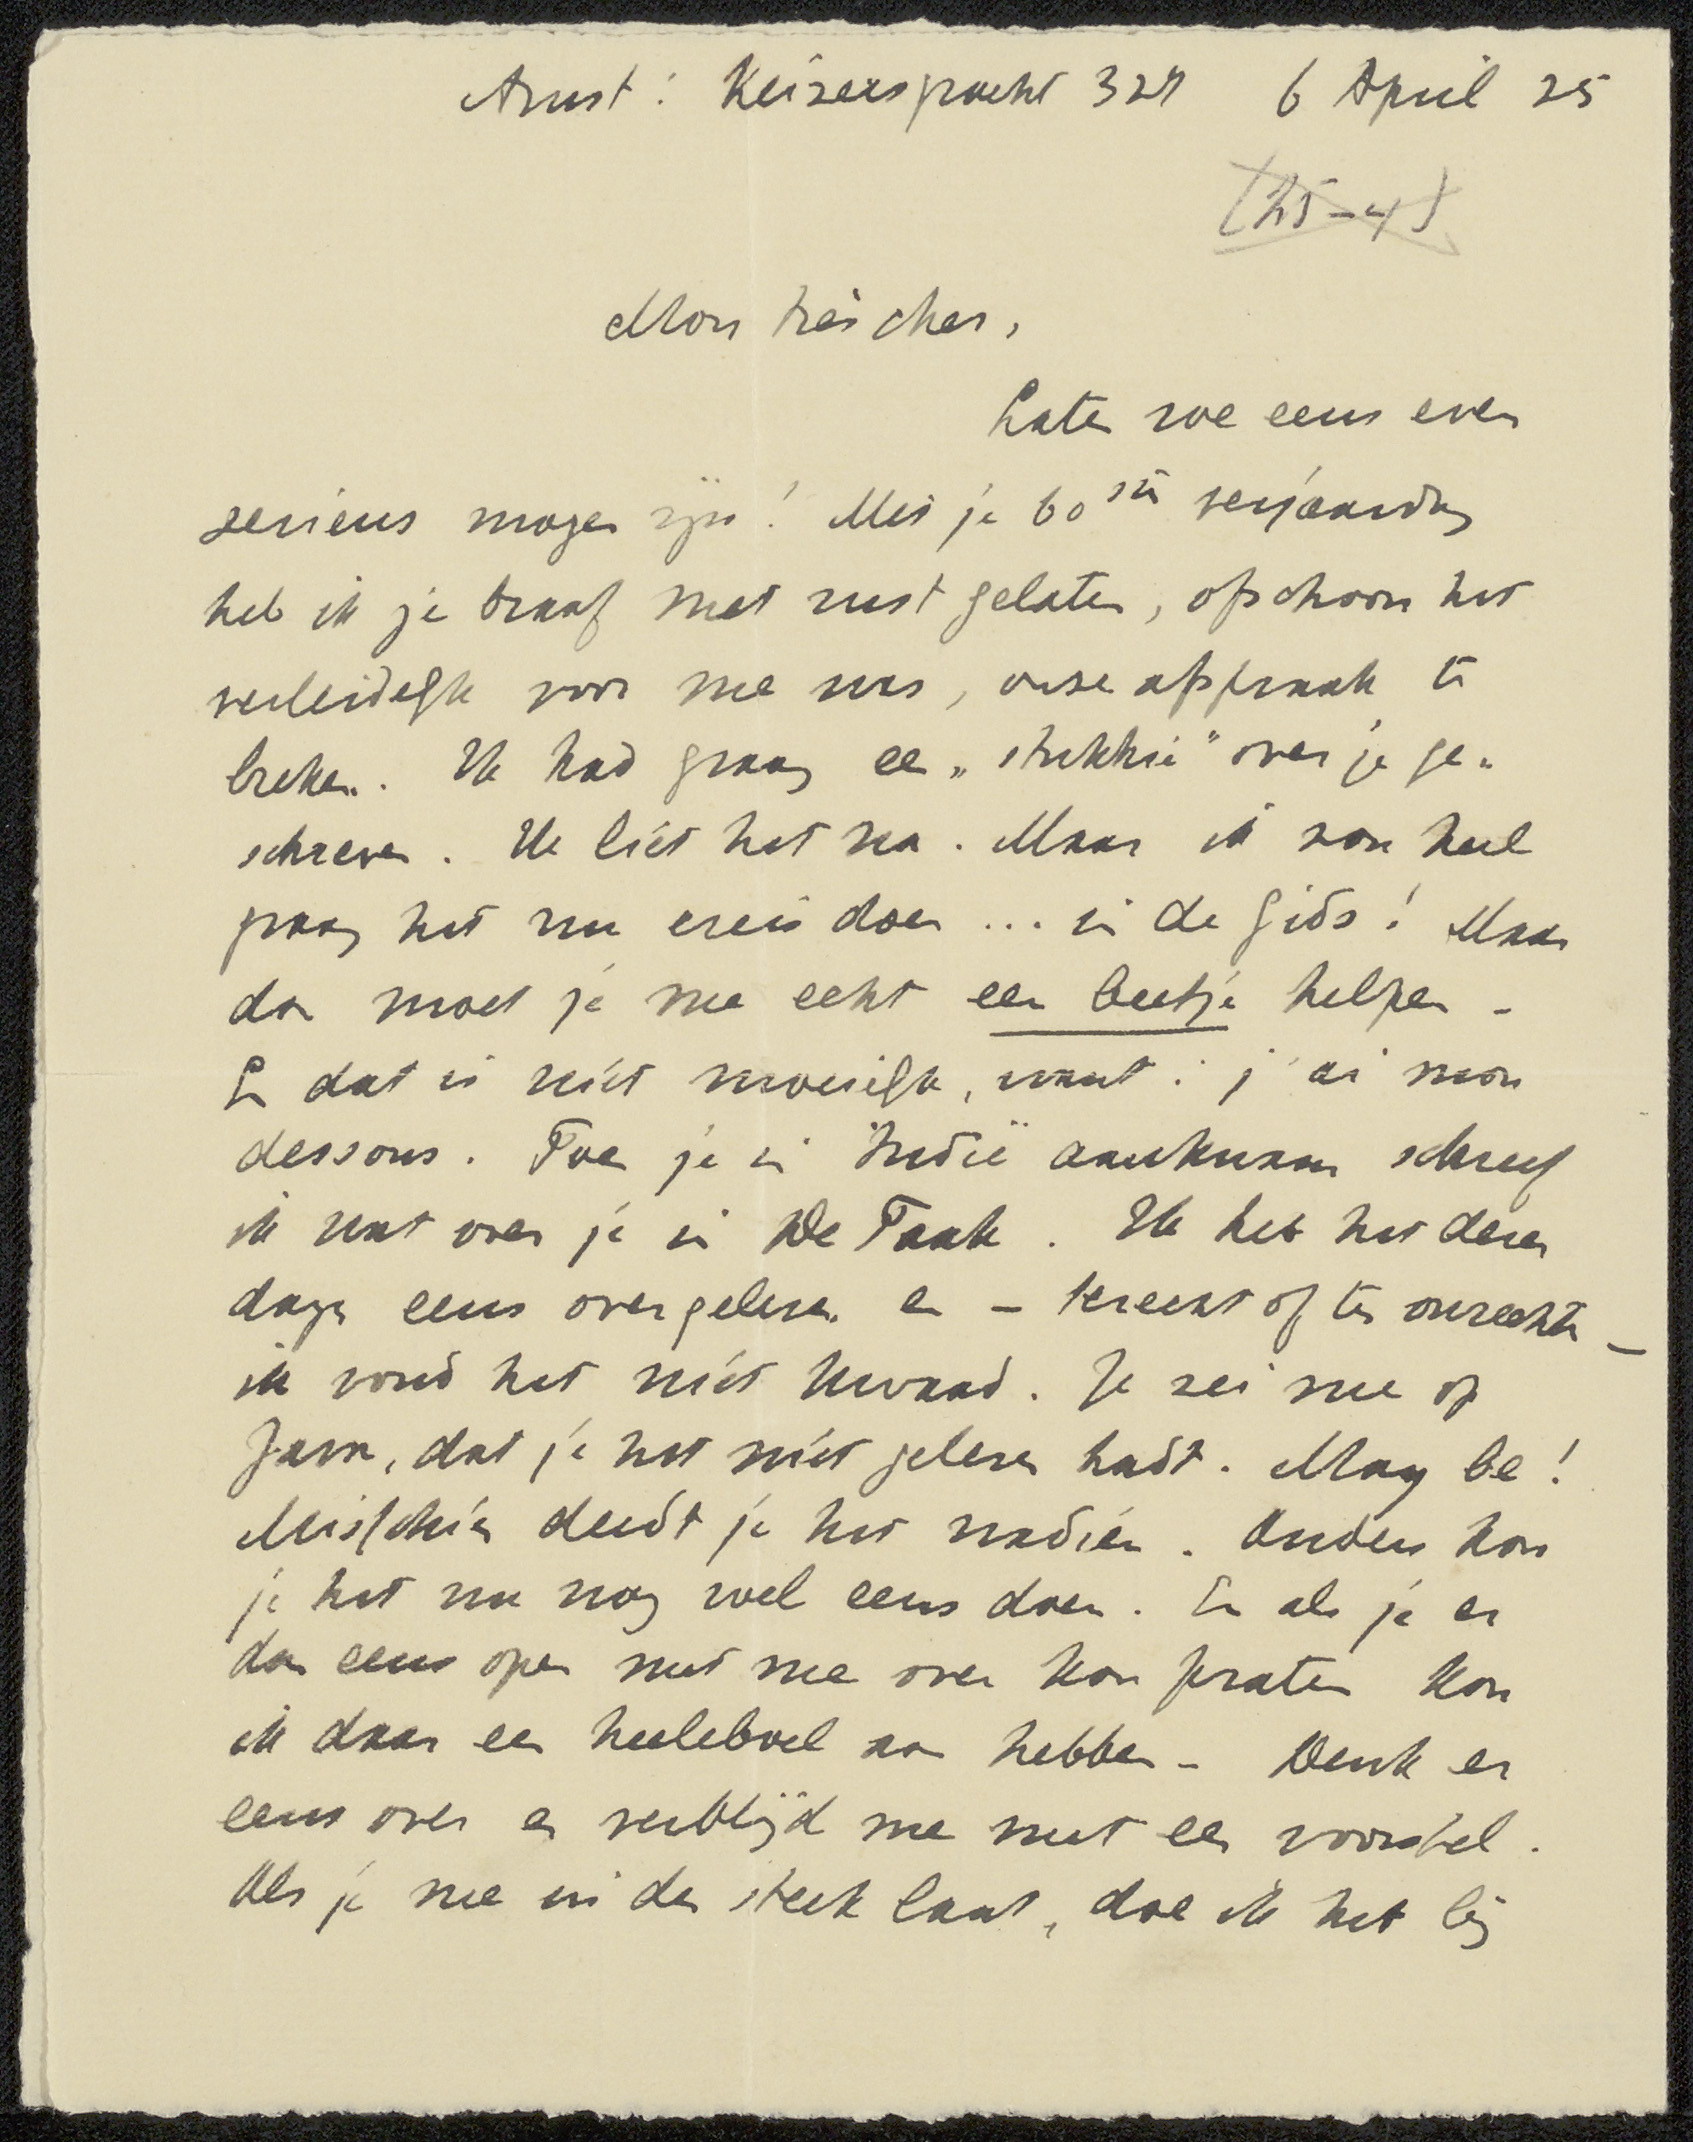 Amst: Keizersgracht 327 6 April 25
(25-4)
Mon très cher,
Laten we eens even
serieus mogen zijn! Met je 60ste verjaardag
heb ik je braaf met rust gelaten, ofschoon het
verleidelijk voor me was, onze afspraak te
breken. Ik had graag een „stukkie" over je ge„
schreven. Ik liet het na. Maar ik zou heel
graag het nu ereis doen ... in de Gids! Maar
dan moet je me echt een beetje helpen –
En dat is niet moeielijk, want: j'ai mon
dessous. Toen je in Indië aankwam schreef
ik wat over je in De Taak. Ik heb het dezer
dagen eens overgelezen en – terecht of ten onrechte –
ik vond het niet kwaad. Je zei me op
Java, dat je het niet gelezen hadt. May be!
Misschien deedt je het nadien. Anders kon
je het nu nog wel eens doen. En als je er
dan eens open met me over kon praten kon
ik daar een heeleboel aan hebben – Denk er
eens over en verblijd me met een voorstel.
Als je me in den steek laat, doe ik het bij